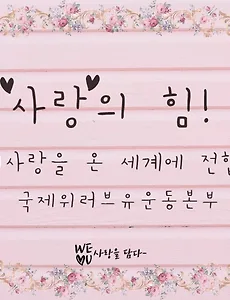 사랑의 힘!
사랑을 온 세계에 전합
국제위러브유운동본부
WE
U 사랑을 담다~